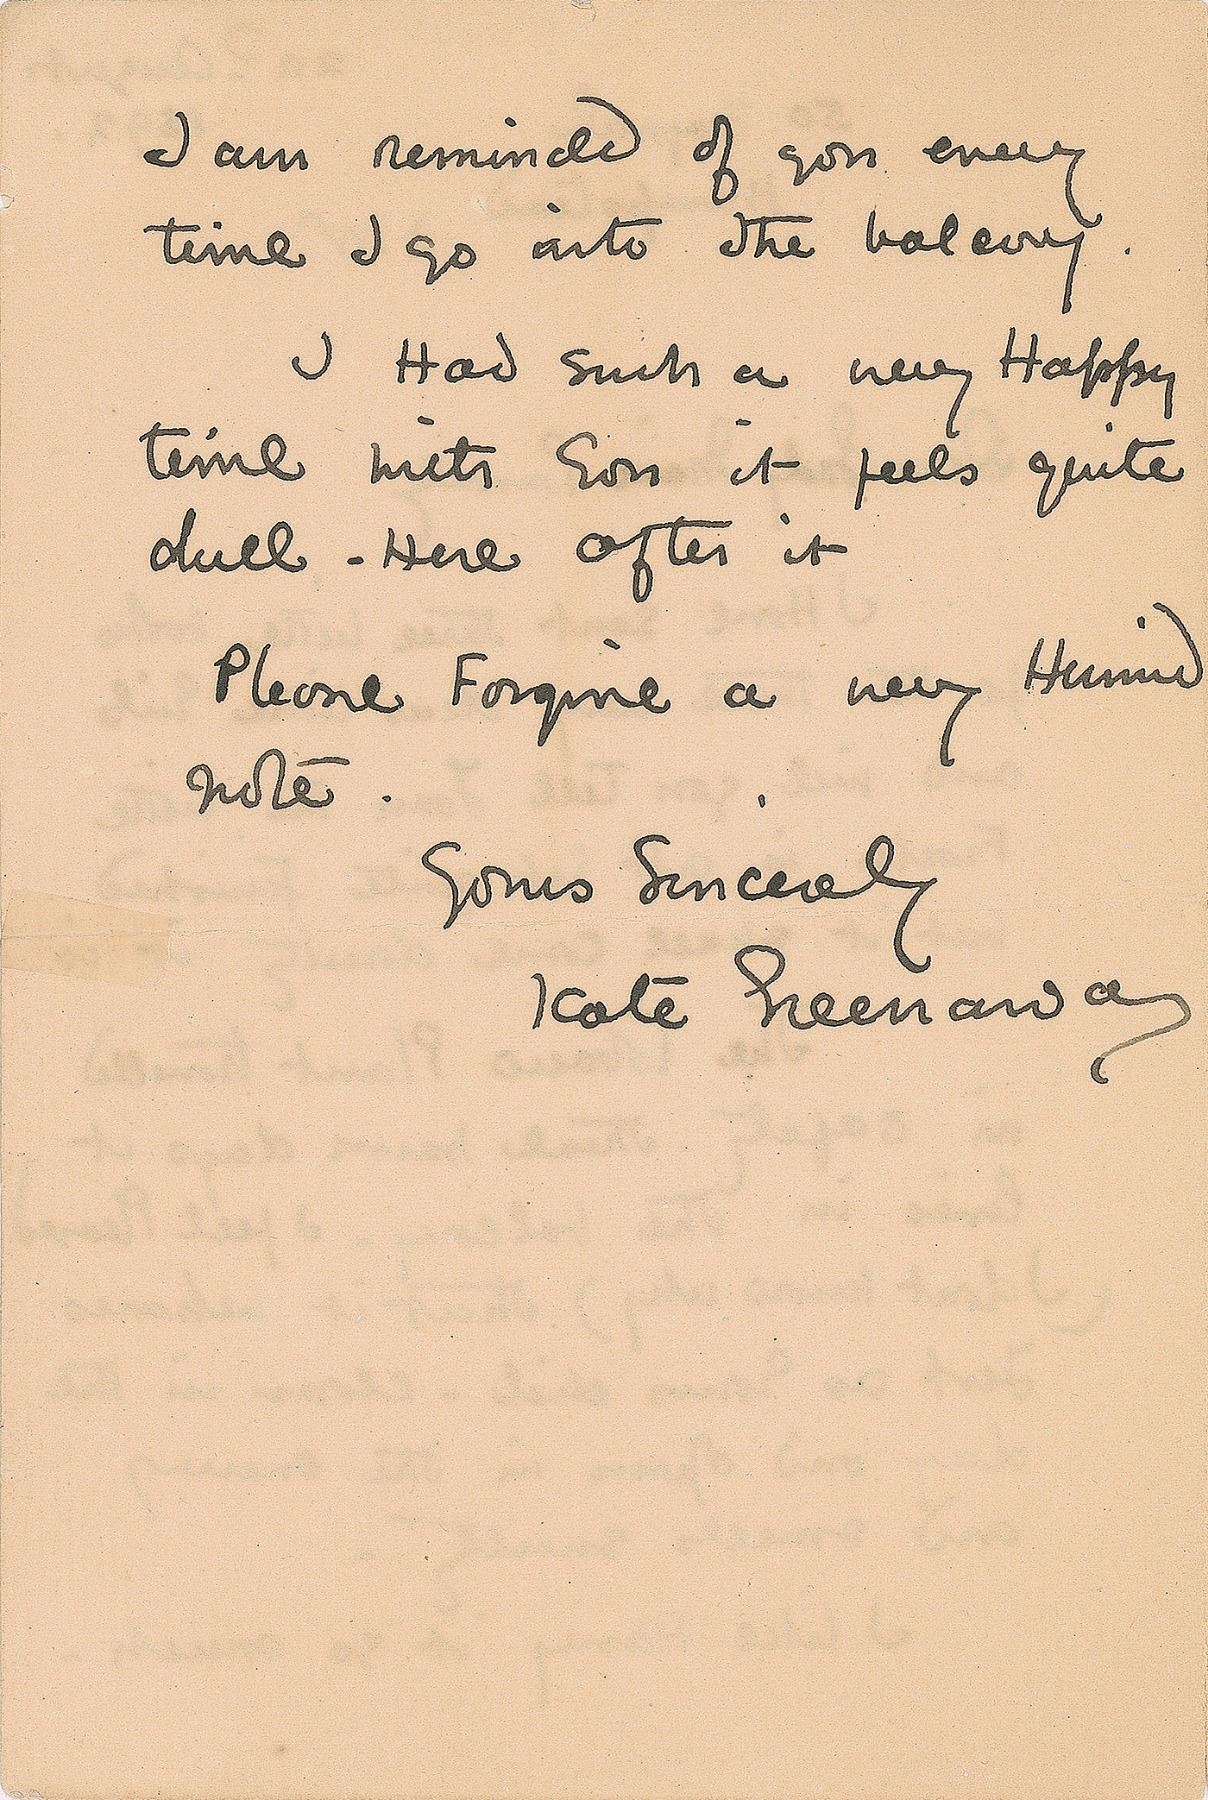 I am reminded of you every
time I go into the balcony.
I Had such a very Happy
time with You it feels quite
dull - Here after it
Please Forgive a very Hurried
note.
Yours Sincerely
Kate Greenaway